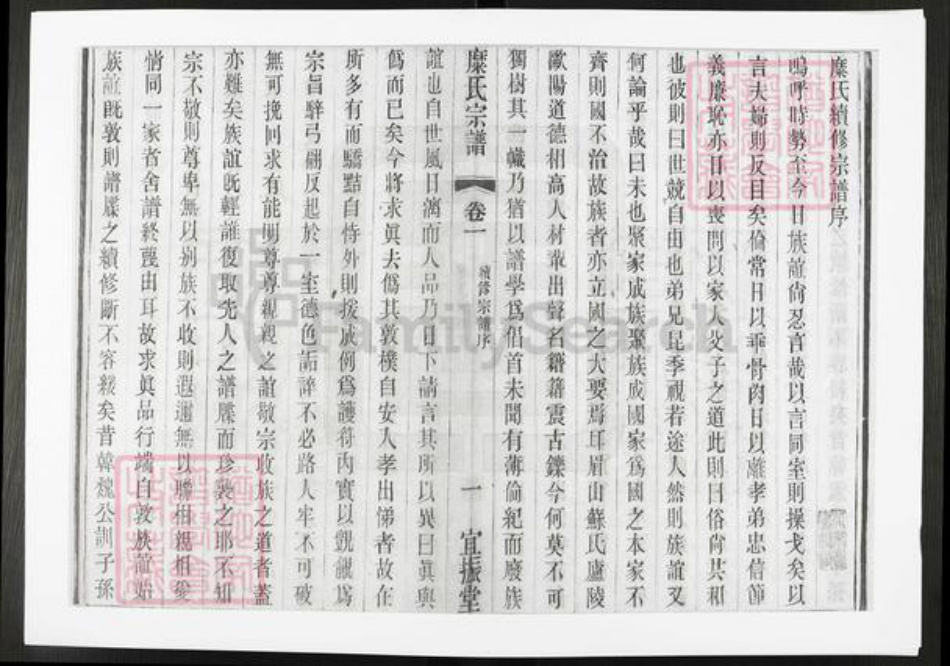 糜氏續修宗譜序
嗚呼時勢至今日族誼尙忍言哉以言同室則操戈矣以
言夫婦則反目矣倫常日以乖骨肉日以離孝弟忠信節
義廉恥亦日以喪問以家人父子之道此則曰俗尙共和
也彼則曰世競自由也弟兄昆季視若途人然則族誼又
何論乎哉曰未也聚家成族聚族成國家爲國之本家不
齊則國不治故族者亦立國之大要焉耳眉山蘇氏廬陵
歐陽道德相高人材輩出聲名籍籍震古鑠今何莫不可
獨樹其一幟乃猶以譜學爲倡首未聞有薄倫紀而廢族
糜氏宗譜 卷一 續修宗譜序 一 宜振堂
誼也自世風日漓而人品乃日下請言其所以異曰眞與
僞而已矣今將求眞去僞其敦樸自安人孝出悌者故在
所多有而驕黠自恃外則援成例爲護符內實以覬覦爲
宗旨騂弓翩反起於一室德色詬誶不必路人牢不可破
無可挽回求有能明尊尊親親之誼敬宗收族之道者蓋
亦難矣族誼旣輕誰復取先人之譜牒而珍襲之耶不知
宗不敬則尊卑無以別族不收則遐邇無以聯相親相愛
情同一家者舍譜終莫由耳故求眞品行端自敦族誼始
族誼旣敦則譜牒之續修斷不容緩矣昔韓魏公訓子孫